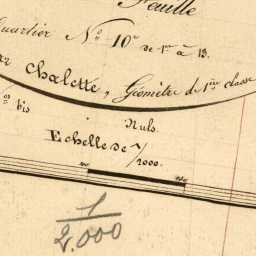 Feuille
Quartier N.º 10º de 1ª à 13.
ar Chalette, Géomètre de 1ère classe
os bis
Nuls.
Echelle de 1/2000.
1/2.000